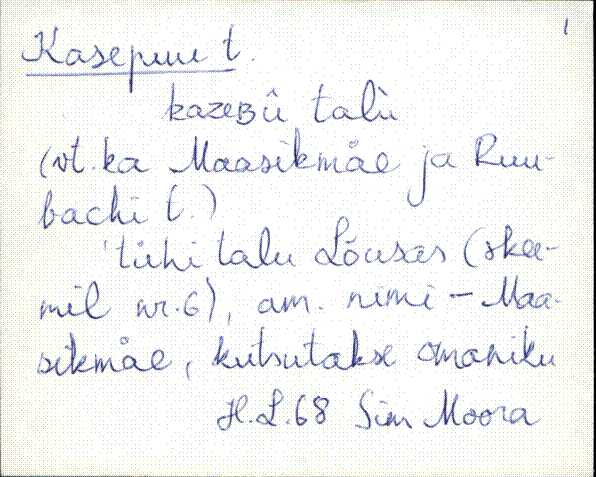 1
Kasepuu t.
kazeBû talù
(vt. ka Maasikmäe ja Ruu-
bachi t.)
tühi talu Lõusas (skee-
mil nr. 6), am. nimi - Maa-
sikmäe, kutsutakse omaniku
H.L.68 Sim Moora